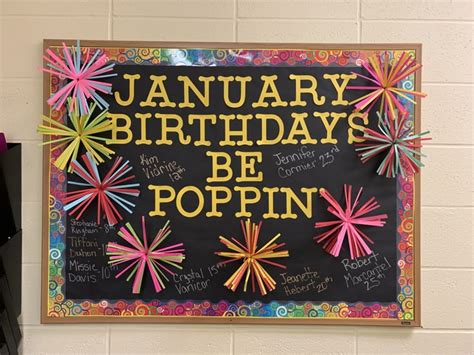 JANUARY
BIRTHDAYS
BE
POPPIN'
Kim
Vidrine
12th
Jennifer
Cormier 23rd
Stephanie
Kingham - 8th
Tiffani
Dation - 10th
Missie
Davis - 10th
Crystal 15th
Vanicor
Jeanette
Hebert 20th
Robert
Marcantel
25th